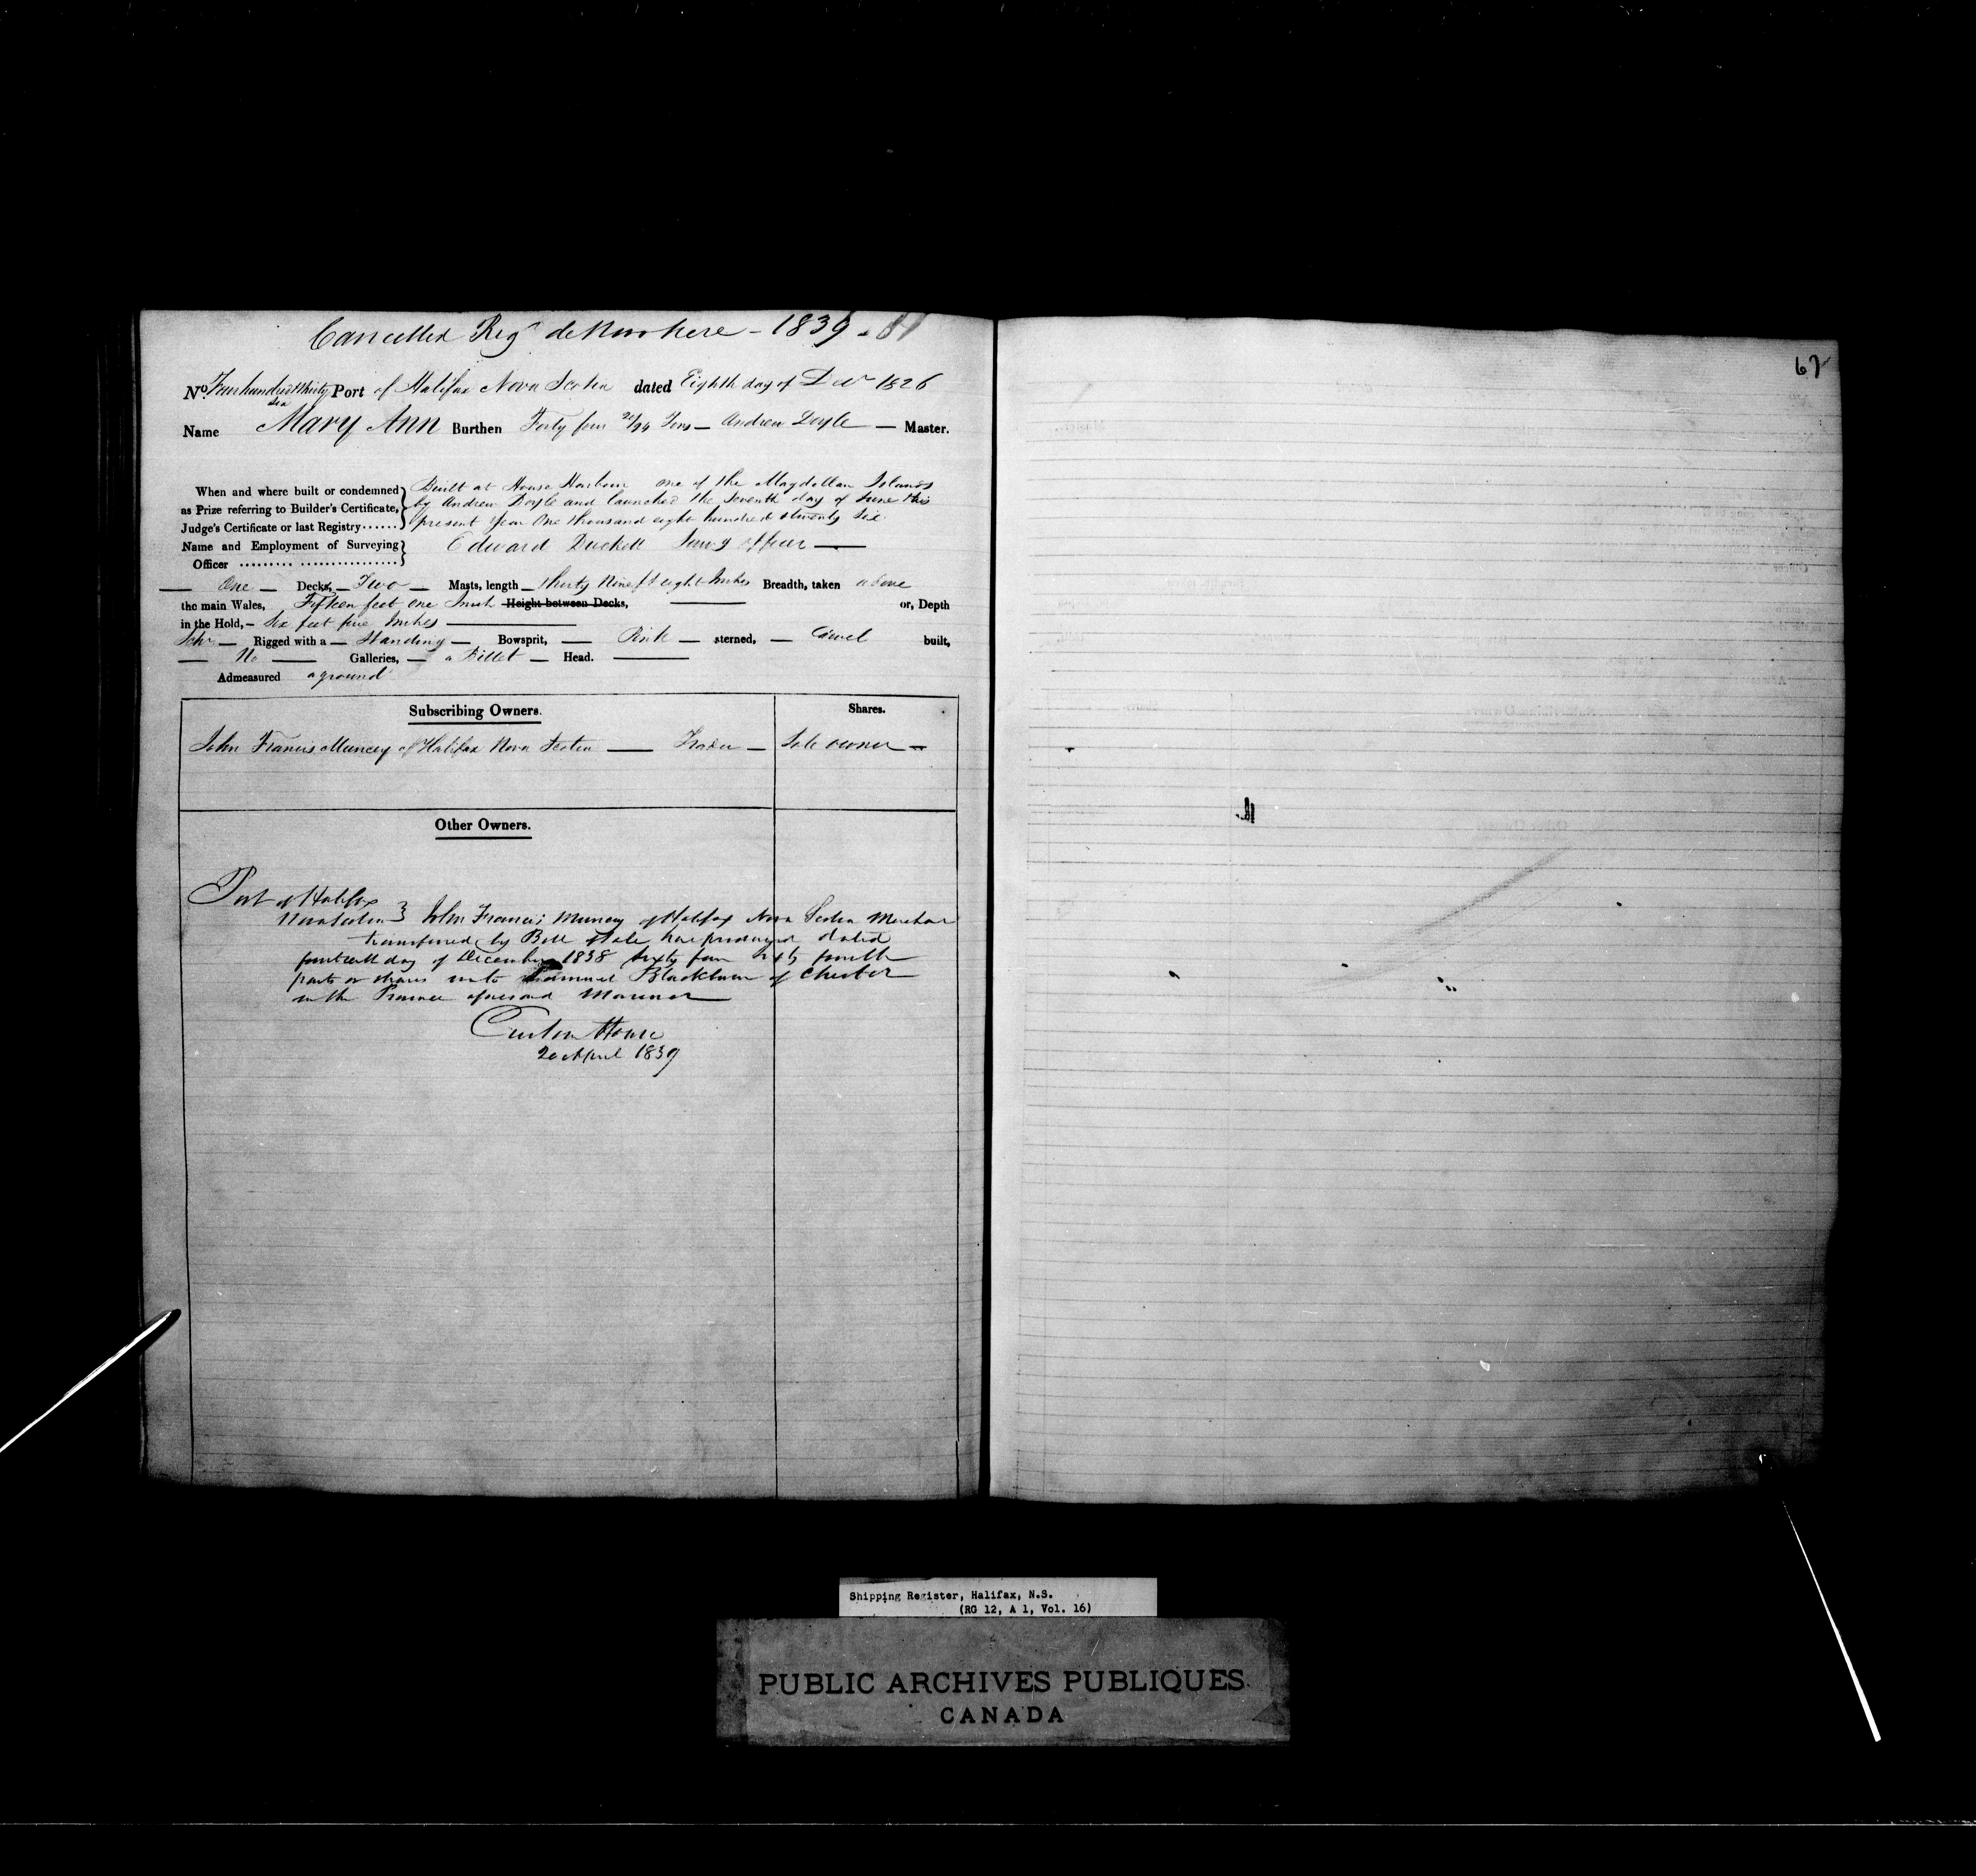 Cancelled Regd de Novo here - 1839 - 81
No. Four hundred & thirty Six Port of Halifax Nova Scotia dated Eighth day of Decr 1826
Name Mary Ann Burthen Forty four 20/94 Tons — Andrew Doyle — Master.
When and where built or condemned as Prize referring to Builder's Certificate, Judge's Certificate or last Registry......
Built at House Harbour one of the Magdellan Islands
by Andrew Doyle and launched the Seventh day of June this
present year One thousand eight hundred & twenty Six
Name and Employment of Surveying Officer ......... ................
Edward Duckett Survg officer —
— One — Decks, — Two — Masts, length — thirty Nine ft eight Inches Breadth, taken above
the main Wales, Fifteen feet one Inch Height between Decks, — or, Depth
in the Hold, — Six feet five Inches —
Schr — Rigged with a — Standing — Bowsprit, — Pink — sterned, — Carvel built,
— No — Galleries, — a Billet — Head. —
Admeasured aground
Subscribing Owners.
Shares.
John Francis Muncey of Halifax Nova Scotia — Trader —
Sole owner —
Other Owners.
Port of Halifax
Nova Scotia } John Francis Muncey of Halifax Nova Scotia Merchant
transferred by Bill of Sale here produced dated
fourteenth day of December 1838 Sixty four Sixty fourth
parts or shares unto Samuel Blackburn of Chester
in the Province aforesaid Mariner —
Custom House
20 April 1839
67
Shipping Register, Halifax, N.S.
(RG 12, A 1, Vol. 16)
PUBLIC ARCHIVES PUBLIQUES
CANADA